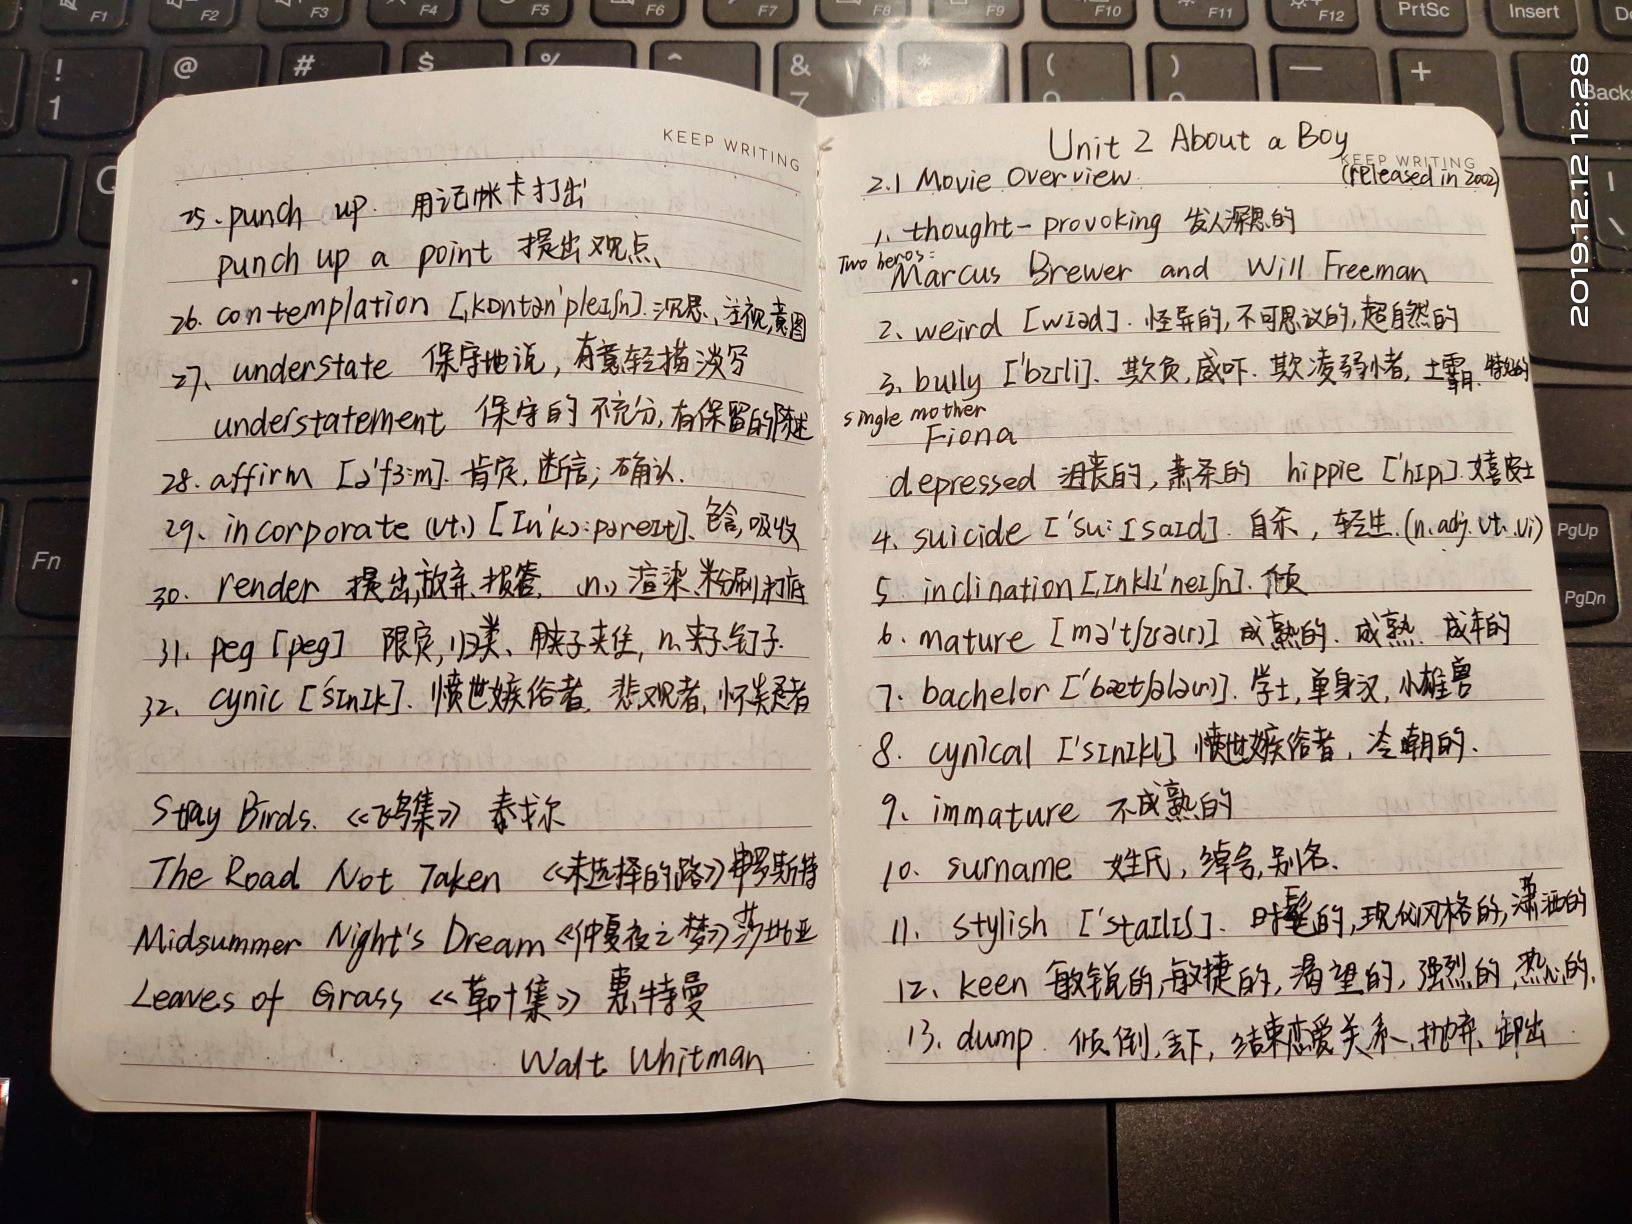 KEEP WRITING
25. punch up. 用记帐卡打出
punch up a point 提出观点
26. contemplation [ˌkɒntən'pleɪʃn]. 沉思, 注视, 意图
27、understate 保守地说, 有意轻描淡写
understatement 保守的 不充分, 有保留的陈述
28. affirm [ə'fɜ:m]. 肯定, 断言; 确认.
29、incorporate (vt.) [ɪn'kɔ:pəreɪt]. 包含, 吸收
30. render 提出, 放弃, 报答. (n.) 渲染, 粉刷, 打底
31. peg [peg] 限定, 归类、用夹子夹住, n. 夹子. 钉子.
32. cynic ['sɪnɪk]. 愤世嫉俗者. 悲观者, 怀疑者
Stray Birds. 《飞鸟集》 泰戈尔
The Road Not Taken 《未选择的路》弗罗斯特
Midsummer Night's Dream 《仲夏夜之梦》莎士比亚
Leaves of Grass 《草叶集》 惠特曼
Walt Whitman
Unit 2 About a Boy
KEEP WRITING
2.1 Movie Overview (released in 2002)
1. thought-provoking 发人深思的
Two heros:
Marcus Brewer and Will Freeman
2. weird [wɪəd]. 怪异的, 不可思议的, 超自然的
3. bully ['bʊli]. 欺负, 威吓. 欺凌弱小者, 土霸.
single mother
Fiona
depressed 沮丧的, 萧条的 hippie ['hɪpi]. 嬉皮士
4. suicide ['su:ɪsaɪd]. 自杀, 轻生. (n. adj. vt. vi)
5. inclination [ˌɪnklɪ'neɪʃn]. 倾
6. mature [mə'tʃʊə(r)] 成熟的. 成熟. 成年的
7. bachelor ['bætʃələ(r)]. 学士, 单身汉, 小雄兽
8. cynical ['sɪnɪkl] 愤世嫉俗者, 冷嘲的.
9. immature 不成熟的
10. surname 姓氏, 绰号, 别名.
11. stylish ['staɪlɪʃ]. 时髦的, 现代风格的, 潇洒的
12、keen 敏锐的, 敏捷的, 渴望的, 强烈的, 热心的.
13. dump 倾倒, 丢下, 结束恋爱关系, 抛弃、卸出
2019.12.12 12:28
F1
F2
F3
F4
F5
F6
F7
F8
F9
F10
F11
F12
PrtSc
Insert
! 1
@
#
$
%
^
& 7
*
(
)
—
+
Back
Fn
PgUp
PgDn